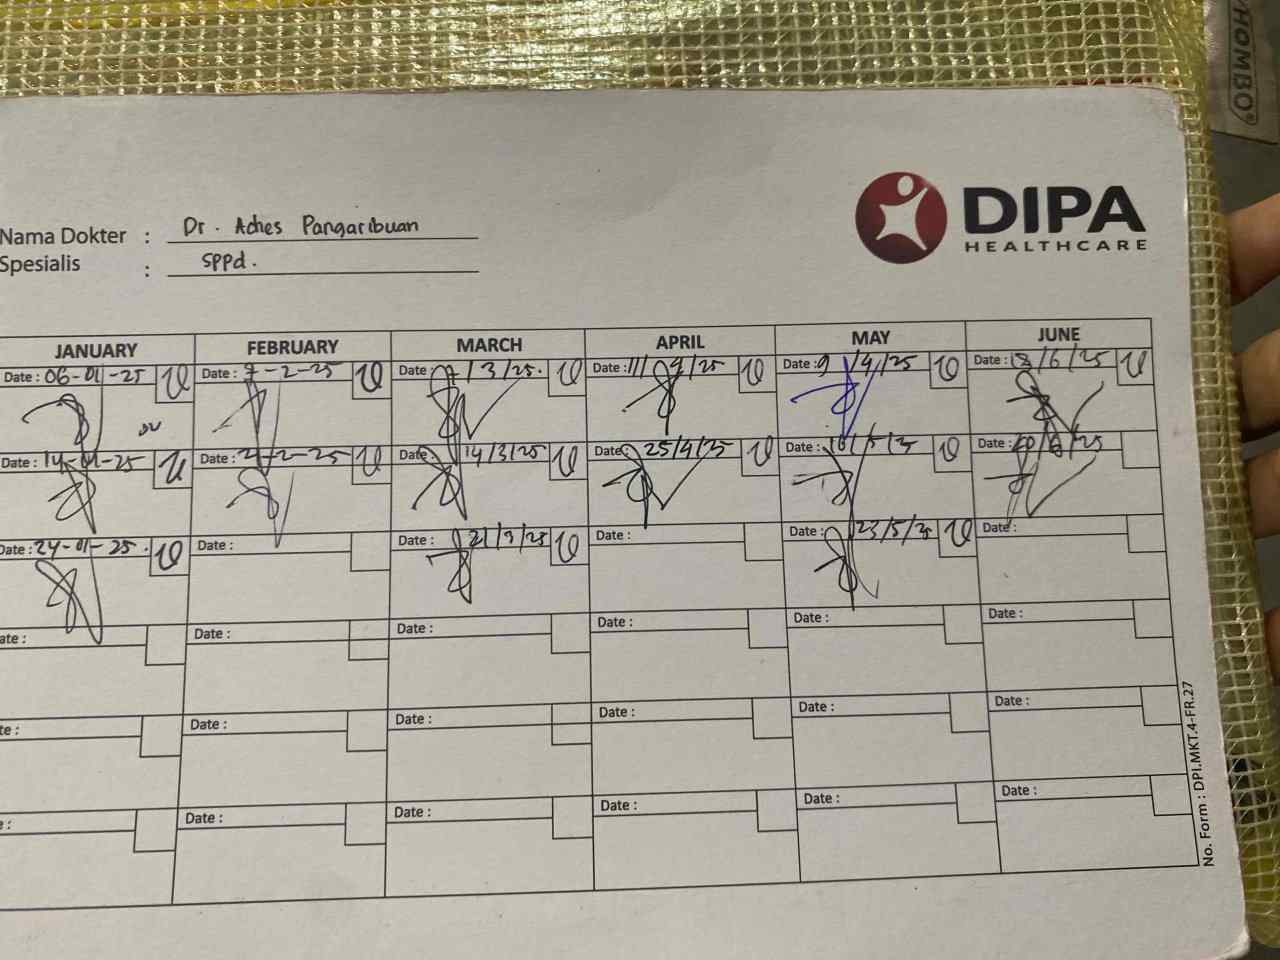 HOMBO®
DIPA
HEALTHCARE
Nama Dokter : Dr. Aches Pangaribuan
Spesialis : SPPd.
JANUARY FEBRUARY MARCH APRIL MAY JUNE
Date : 06-01-25 Date : 7-2-25 Date : 7/3/25. Date : 11/4/25 Date : 9/4/25 Date : 13/6/25
Date : 14-01-25 Date : 21-2-25 Date : 14/3/25 Date : 25/4/25 Date : Date :
Date : 24-01-25. Date : Date : 21/3/25 Date : Date : 23/5/25 Date :
ate : Date : Date : Date : Date : Date :
te : Date : Date : Date : Date : Date :
e : Date : Date : Date : Date : Date :
No. Form : DPI.MKT.4-FR.27